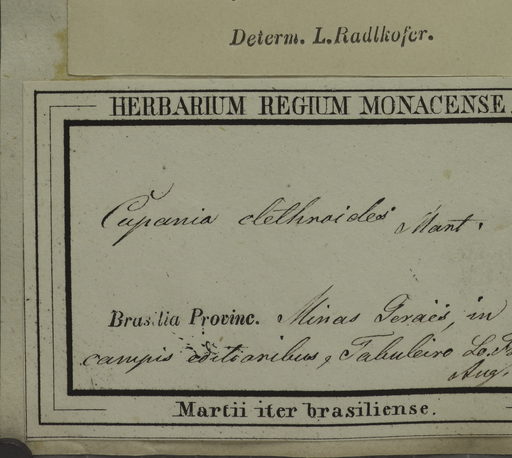 Determ. L. Radlkofer.
HERBARIUM REGIUM MONACENSE.
Cupania clethroides Mart.
Brasilia Provinc. Minas Geraës, in
campis editioribus, Tabuleiro
Aug.
Martii iter brasiliense.